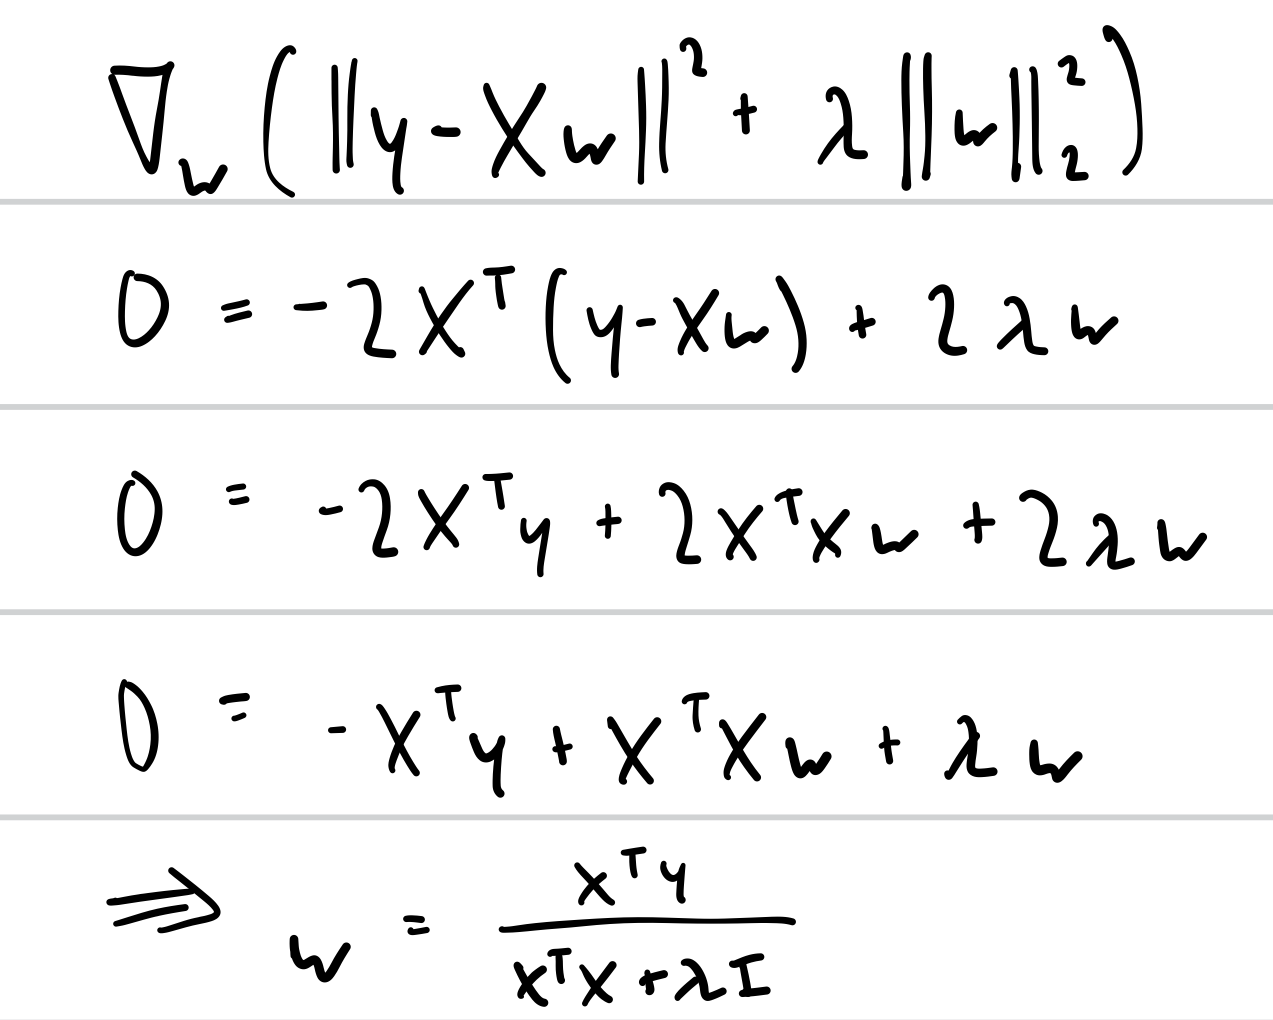 ∇_w (||y - Xw||² + λ||w||₂²)
0 = -2Xᵀ(y - Xw) + 2λw
0 = -2Xᵀy + 2XᵀXw + 2λw
0 = -Xᵀy + XᵀXw + λw
⇒ w = Xᵀy / (XᵀX + λI)